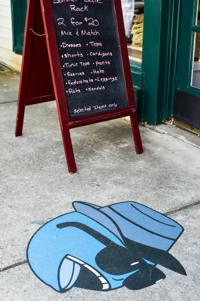 Summer Sale
Rack
2 for $20
Mix & Match
-Dresses -Tops
-Shorts -Cardigans
-Tunic Tops -Pants
-Scarves -Hats
-Fedoras -Leggings
-Flats -Sandals
Selected Items Only